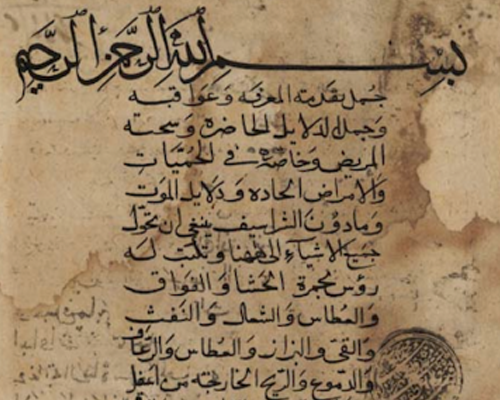 بسم الله الرحمن الرحيم
جمل تقدمة المعرفه وعواقبه
وجمل الدلايل الحاضرة وسحنه
المريض وخاصة في الحميات
والامراض الحاده ودلايل الموت
وما دون الشراسيف ينبغي ان تحول
جميع الاشياء الى ههنا وتكتب له
روس الحشا والفواق
والعطاس والسعال والنفث
والقى والبراز والعطاس والرعاف
والدموع والريح الخارجة من اسفل